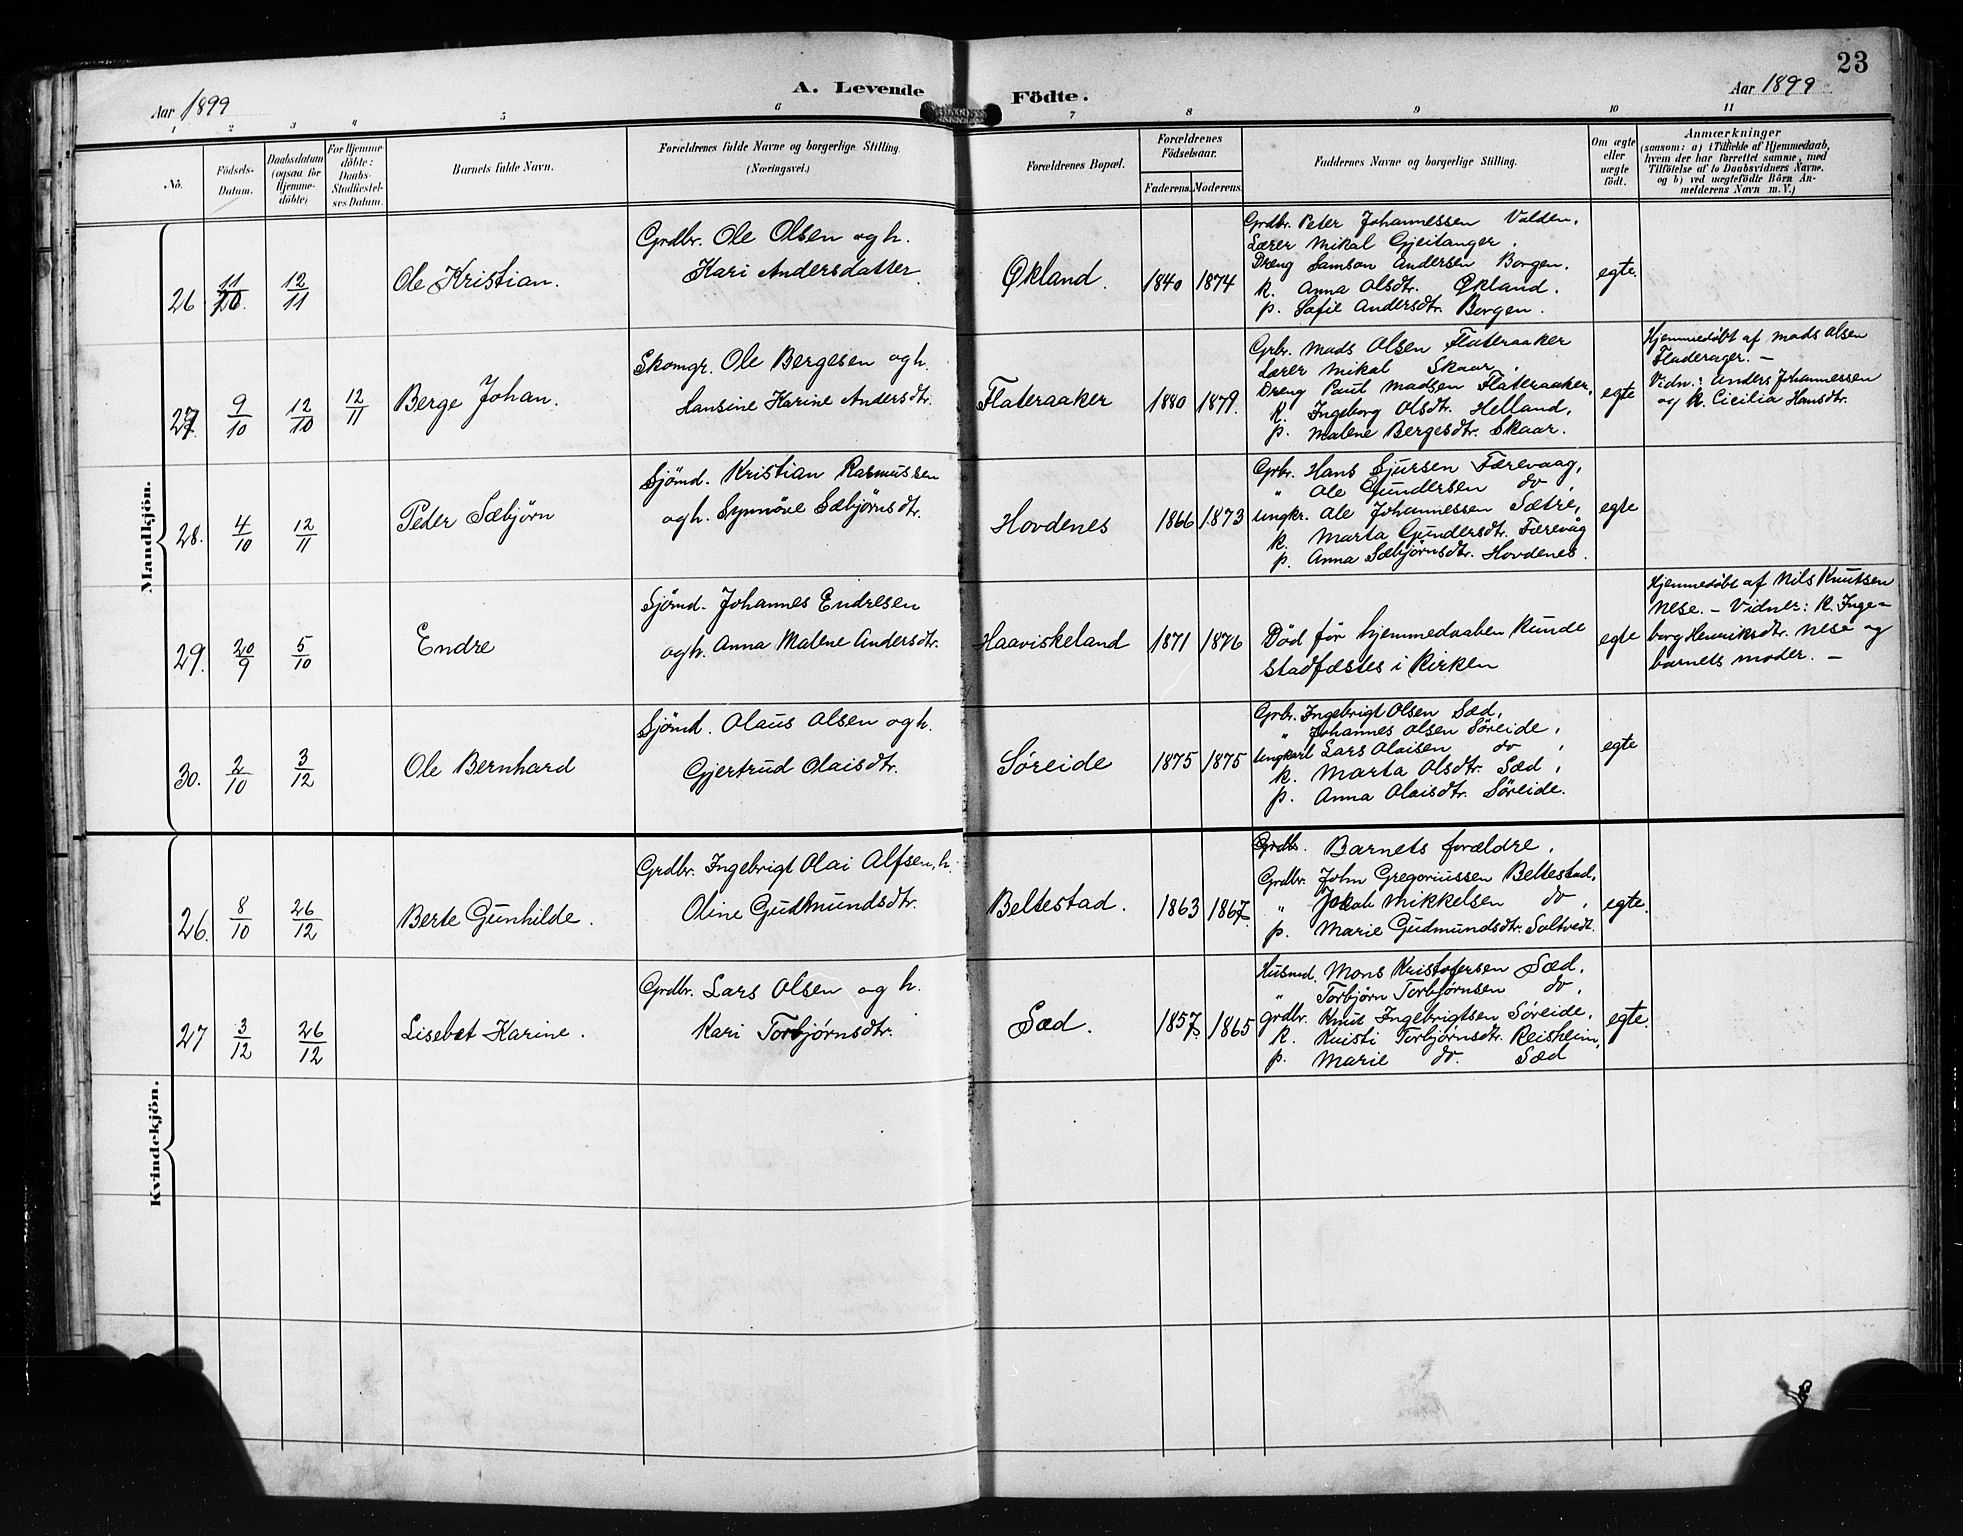 23
A. Levende Födte.
Aar 1899
Aar 1899
1 2 3 4 5 6 7 8 9 10 11
No.
Födsels-Datum.
Daabsdatum (ogsaa for Hjemme-döbte)
For Hjemme-döbte: Daabs-Stadfæstel-ses Datum.
Barnets fulde Navn.
Forældrenes fulde Navne og borgerlige Stilling.
(Næringsvei.)
Forældrenes Bopæl.
Forældrenes Födselsaar.
Faderens. Moderens.
Faddernes Navne og borgerlige Stilling.
Om ægte eller uægte født.
Anmærkninger
(saasom: a) i Tilfælde af Hjemmedaab,
hvem der har forrettet samme, med
Tilföielse af to Daabsvidners Navne,
og b) ved uægtefödte Börn An-
melderens Navn m. V.)
Mandkjön.
26 11/10 12/11
Ole Kristian.
Grdbr. Ole Olsen og h.
Kari Andersdatter
Økland.
1840 1874
Grdbr. Peter Johannessen Valden,
Lærer Mikal Gjeitanger,
Dreng Samson Andersen Borgen.
K. Anna Olsdtr. Økland.
p. Sofie Andersdtr. Borgen.
egte.
27. 9/10 12/10 12/11
Berge Johan.
Skomgr. Ole Bergesen og h.
Hansine Karine Andersdtr.
Flateraaker
1880 1879.
Grbr. Mads Olsen Flateraaker
Lærer Mikal Skaar,
Dreng Paul Madsen Flateraaker,
K. Ingeborg Olsdtr. Helland,
p. Malene Bergesdtr. Skaar.
egte
Hjemmedøbt af Mads Olsen
Fladerager. —
Vidn.: Anders Johannessen
og K. Cicilia Hansdtr.
28. 4/10 12/11
Peder Sæbjørn
Sjömd. Kristian Rasmussen
og h. Synnöve Sæbjørnsdtr.
Hovdenes
1866 1873
Grbr. Hans Sjursen Færevaag,
" Ole Gundersen do,
Ungkr. Ole Johannessen Sætre,
K. Marta Gundersdtr. Færevåg
p. Anna Sæbjørnsdtr. Hovdenes.
egte
29. 20/9 5/10
Endre
Sjömd. Johannes Endresen
og h. Anna Malene Andersdtr.
Haaviskeland
1871 1876
Død før hjemmedaaben kunde
stadfæstes i kirken
egte
Hjemmedøbt af Nils Knutsen
Nese. — Vidner: K. Inge-
borg Henriksdtr. Nese og
barnets moder. —
30. 2/10 3/12
Ole Bernhard
Sjömd. Olaus Olsen og h.
Gjertrud Olaisdtr.
Søreide
1875 1875
Grbr. Ingebrigt Olsen Sæd,
" Johannes Olsen Søreide,
Ungkarl Lars Olaisen do,
K. Marta Olsdtr. Sæd,
p. Anna Olaisdtr. Søreide.
egte
Kvindekjön.
26. 8/10 26/12
Berte Gunhilde.
Grdbr. Ingebrigt Olai Alfsen, h.
Oline Gudmundsdtr.
Beltestad.
1863 1867.
Grdb. Barnets forældre,
Grdbr. John Gregoriussen Beltestad,
" Jakob Mikkelsen do,
p. Marie Gudmundsdtr. Saltvedt.
egte.
27 3/12 26/12
Lisebet Karine.
Grdbr. Lars Olsen og h.
Kari Torbjørnsdtr.
Sæd.
1857. 1865
Husmd. Mons Kristofersen Sæd,
" Torbjörn Torbjørnsen do,
grdbr. Knut Ingebrigtsen Søreide,
K. Kristi Torbjørnsdtr. Reisheim,
p. Marie do. Sæd
egte.